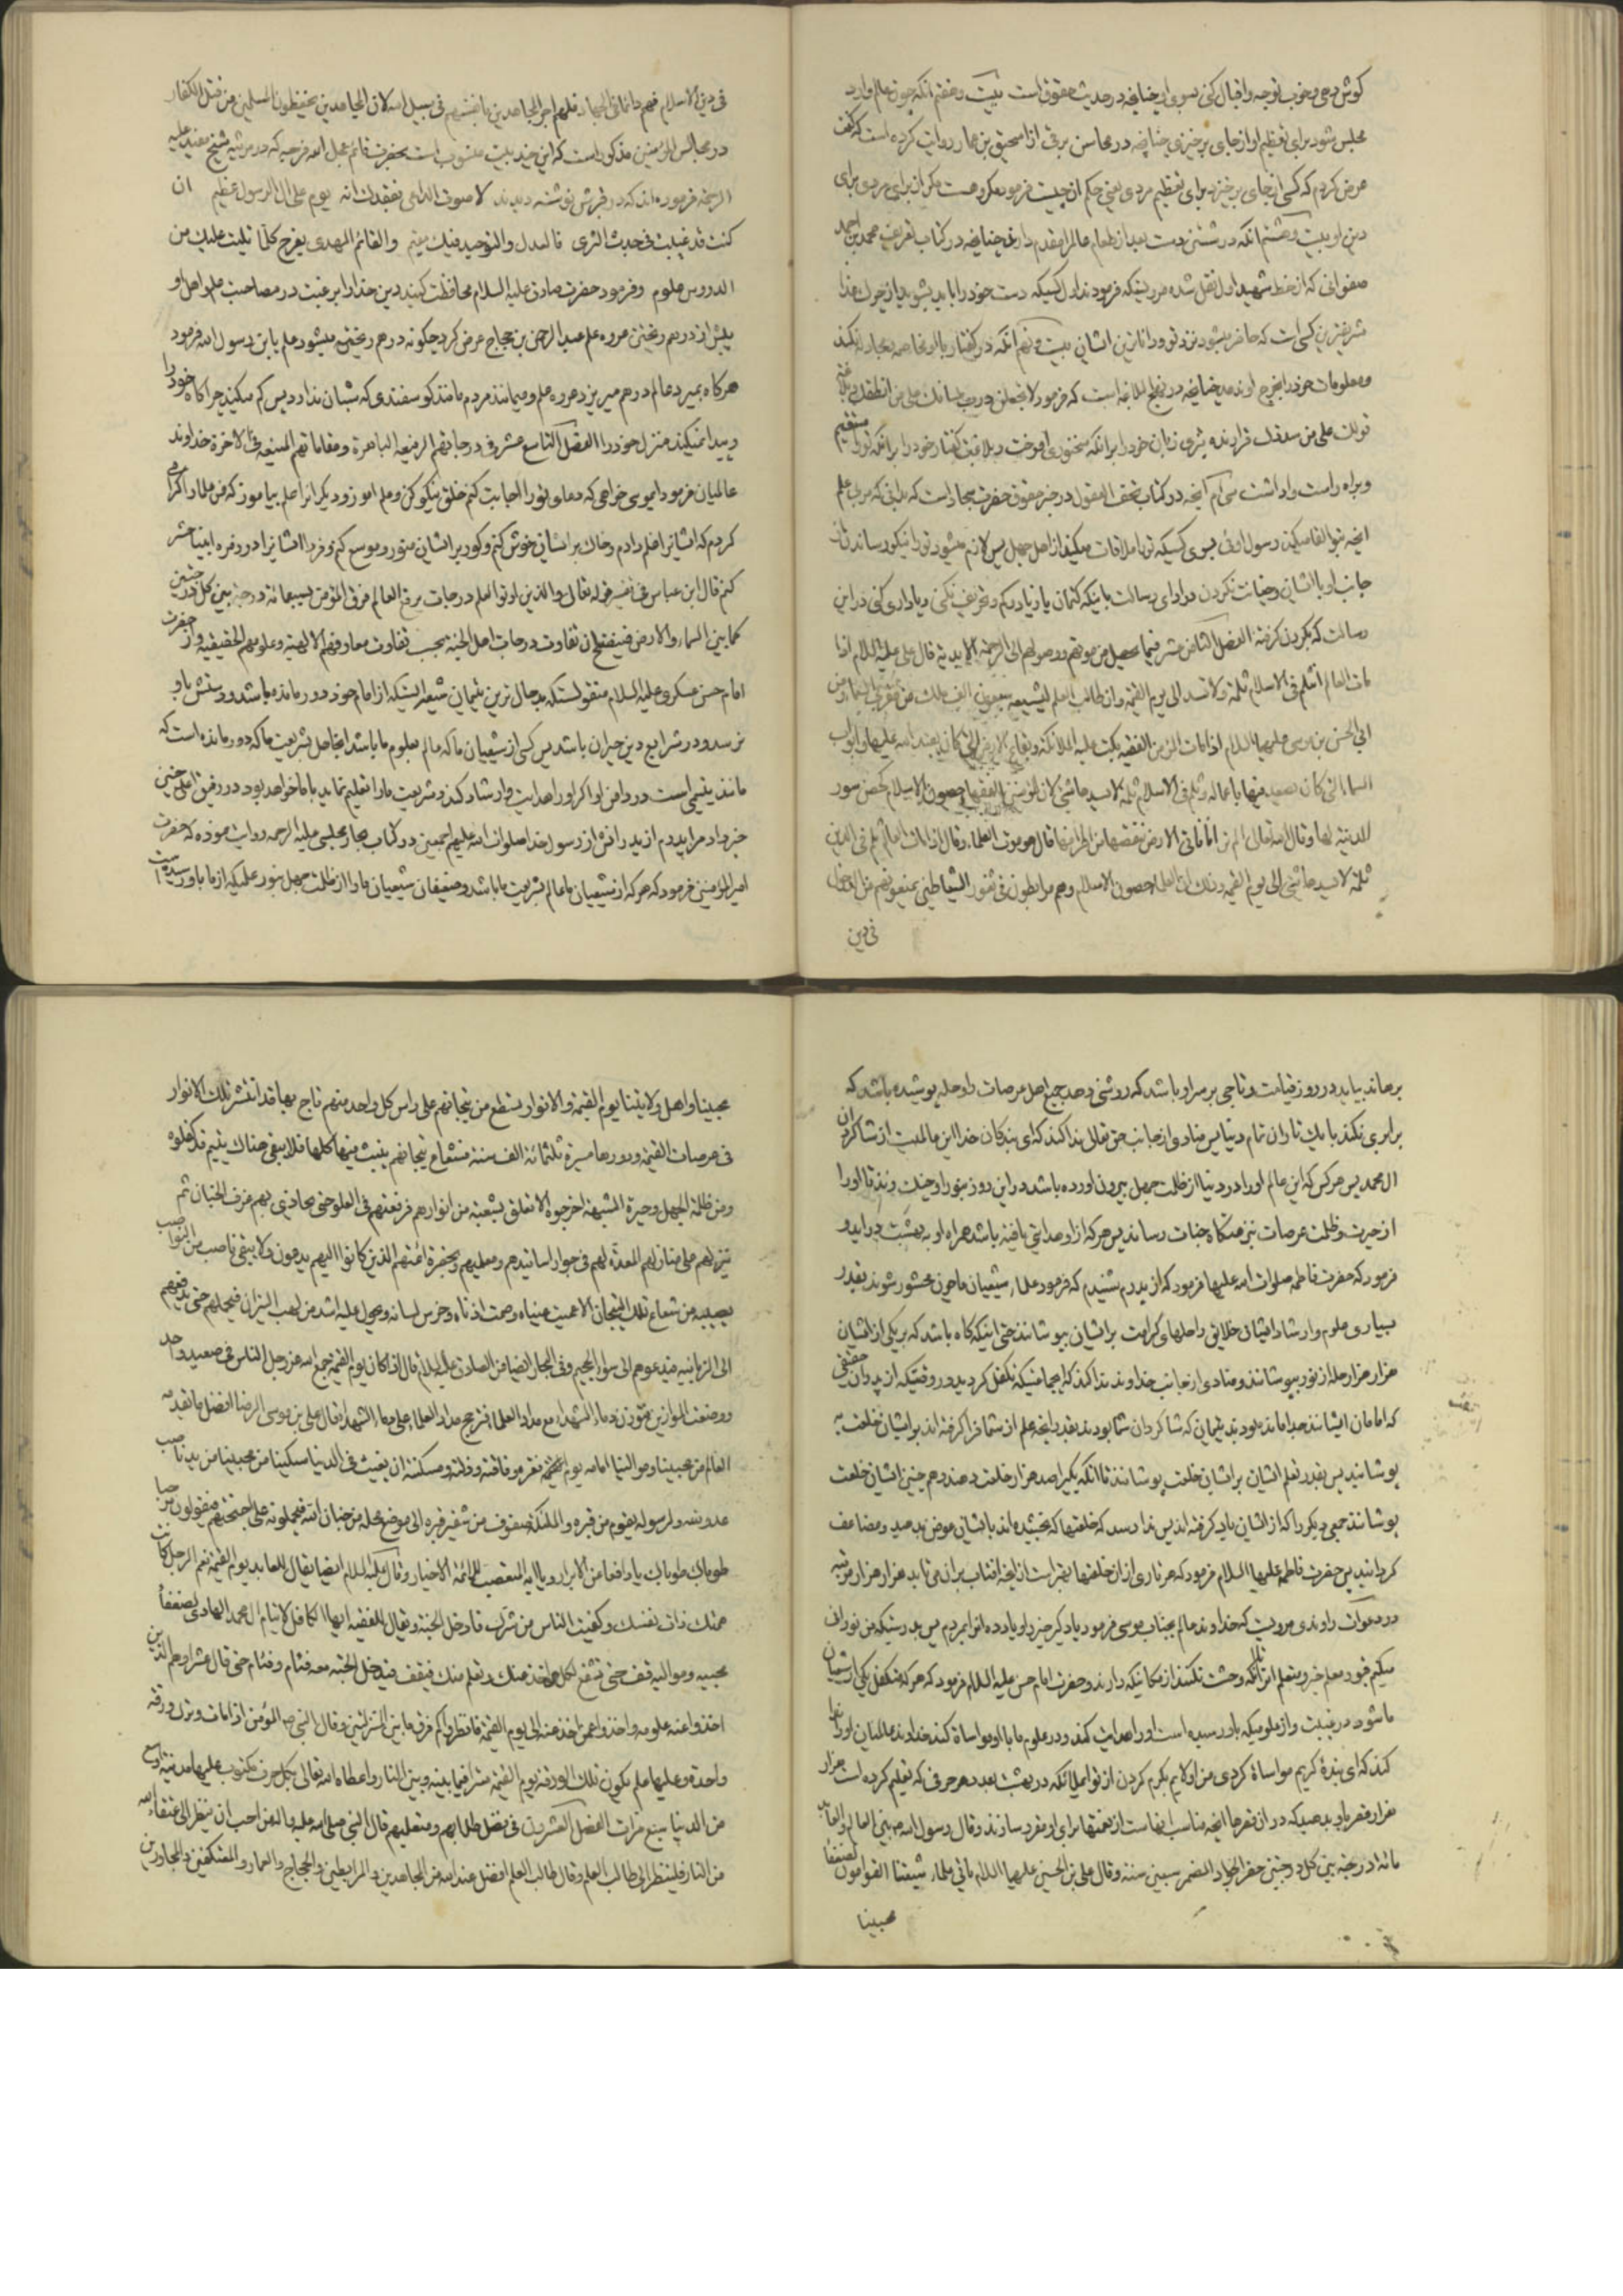 کوش دهی و خوب توجه و اقبال کنی بسوی او چنانچه در حدیث حقوق است بیست و هفتم آنکه چون عالم وارد
مجلس شود برای تعظیم او از جای برخیزی چنانچه در محاسن برقی از اسحق بن عمار روایت کرده است که گفت
عرض کردم که کسی از جای برخیزد برای تعظیم مردی یعنی حکم آن چیست فرمود مکروهست مگر آن برای مردی برای
دین او بیست و هشتم آنکه در شستن دست بعد از طعام عالم را مقدم دارد چنانچه در کتاب تعریف محمد بن احمد
صفوانی که از خط شهید اول نقل شده مرویست که فرمودند اول کسیکه دست خود را باید بشوید از
شریفترین کسی است که حاضر میشود نزد تو و داناترین ایشان بیست و نهم آنکه در گفتار با او مخاصمه و مجادله نکند
و معلومات خود را بخرج او ندهد چنانچه در نهج البلاغه است که فرمود لا تجعلن ذرب لسانك على من انطقك و بلاغة
قولك على من سددك قرار نده تیزی زبان خود را بر آنکه سخنوری آموخت و بلاغت گفتار خود را بر آنکه تو را مستقیم
و براه راست واداشت سی ام آنچه در کتاب تحف العقول در خبر حقوق حضرت سجاد است که بدانی که مربی علم
آنچه بتو القا میکند رسول اوئی بسوی کسیکه تو را ملاقات میکند از اهل جهل پس لازم میشود تو را نیکو رساندن از
جانب او باایشان و خیانت نکردن در ادای رسالت باینکه کتمان یا زیاد و کم و تحریف نکنی و یاداری کنی در این
رسالت که بگردن گرفته الفصل الثامن عشر فیما یحصل من موتهم و وصولهم الی الرحمة الابدیة قال علی علیه السلام اذا
مات العالم انثلم فی الاسلام ثلمة ولا تسد الی یوم القیمة وان طالب العلم لیشیعه سبعون الف ملك من مقربی السماء و من
ابی الحسن بن موسی علیهما السلام اذا مات المؤمن الفقیه بکت علیه الملائکة و بقاع الارض التی کان یعبد الله علیها و ابواب
السماء التی کان یصعد فیها باعماله و ثلم فی الاسلام ثلمة لا یسدها شیء لان المؤمنین الفقهاء حصون الاسلام کحصن سور
المدینة لها وقال الله تعالی اولم یروا انا ناتی الارض ننقصها من اطرافها قال هو موت العلماء وقال اذا مات العالم ثلم فی الدین
ثلمة لا یسدها شیء الی یوم القیمة وذلك ان العلماء حصون الاسلام وهم مرابطون فی ثغور الشیاطین یمنعونهم من الدخول
فی دین
فی دین الاسلام فهم دائما فی الجهاد فلهم اجر المجاهدین بانفسهم فی سبیل الله لان المجاهدین یحفظون المسلمین من قتل الکفار
در مجالس المؤمنین مذکور است که این چند بیت منسوب است بحضرت قائم عجل الله فرجه که در مرثیه شیخ مفید علیه
الرحمة فرموده اند که در قبرش نوشته دیدند لا صوت الداعی بفقدك انه یوم علی ال الرسول عظیم ان
کنت قد غیبت فی جدث الثری فالعدل والتوحید فیك مقیم والقائم المهدی یفرح کلما تلیت علیك من
الدروس علوم وفرمود حضرت صادق علیه السلام محافظت کنید دین خدا را برغبت در مصاحبت علم و اهل او
پیش از درهم ریختن عروه علم عبد الرحمن بن حجاج عرض کرد چگونه درهم ریخته میشود علم یا بن رسول الله فرمود
هرگاه بمیرد عالم درهم میریزد عروه علم و میمانند مردم مانند گوسفندی که شبان ندارد پس گم میکند چراگاه خود را
و پیدا نمیکند منزل خود را الفصل التاسع عشر فی درجاتهم الرفیعة الباهرة ومقاماتهم المنیعة فی الاخرة خداوند
عالمیان فرمود ایموسی خواهی که دعای تو را اجابت کنم خلق نیکو کن و علم اموز و دیگرانرا علم بیاموز که من علما را اکرامی
کردم که ایشانرا علم دادم و خاک بر ایشان خوش کنم و گور بر ایشان منور و موسع کنم و فردا ایشانرا در زمره انبیا حشر
کنم قال ابن عباس فی تفسیر قوله تعالی والذین اوتوا العلم درجات یرفع العالم فوق المؤمن بسبعمائة درجة بین کل درجتین
کما بین السماء والارض فینفتح ان تفاوت درجات اهل الجنة بحسب تفاوت معارفهم الالهیة وعلومهم الحقیقیة و از حضرت
امام حسن عسکری علیه السلام منقولستکه بدحال ترین یتیمان شیعه انستکه از امام خود دور مانده باشد و دستش باو
نرسد و در شرایع دین حیران باشد پس کسی از شیعیان ما که عالم بعلوم ما باشد این جاهل بشریعت ما که دور مانده است که
مانند یتیمی است در دامن او اگر او را هدایت و ارشاد کند و شریعت ما را تعلیم نماید با ما خواهد بود در رفیق اعلی چنین
خبر داد مرا پدرم از پدرانش از رسول خدا صلوات الله علیهم اجمعین در کتاب بحار مجلسی علیه الرحمه روایت نموده که حضرت
امیر المؤمنین فرمود که هر که از شیعیان ما عالم بشریعت ما باشد و ضعیفان شیعیان ما را از ظلمت جهل بنور علمیکه از ما باو رسیده است
برهاند بیاید در روز قیامت و تاجی بر سر او باشد که روشنی دهد جمیع اهل عرصات را و حله پوشیده باشد که
برابری نکند با یک تار آن تمام دنیا پس منادی از جانب حق تعالی ندا کند که ای بندگان خدا این عالمیست از شاگردان
ال محمد پس هر کس که این عالم او را در دنیا از ظلمت جهل بیرون اورده باشد در این روز بنور او چنگ زند تا او را
از حیرت و ظلمت عرصات بنزهتگاه جنات رساند پس هر که از او هدایتی یافته باشد همراه او به بهشت دراید و
فرمود که حضرت فاطمه صلوات الله علیها فرمود که از پدرم شنیدم که فرمود علماء شیعیان ما چون محشور شوند بقدر
بسیاری علوم و ارشاد ایشان خلایق را حلهای کرامت بر ایشان بپوشانند حتی اینکه گاه باشد که بر یکی از ایشان
هزار هزار حله از نور بپوشانند و منادی از جانب خداوند ندا کند که ایجماعتیکه تکفل کردید در وقتیکه از پدران حقیقی
که امامان ایشانند جدا مانده بودند یتیمان که شاگردان شما بودند بقدر انچه علم از شما فرا گرفته اند بر ایشان خلعت
بپوشانید پس بقدر تعلم ایشان بر ایشان خلعت پوشانند تا آنکه یکیرا صد هزار خلعت دهند و هم چنین ایشان خلعت
پوشانند جمعی دیگر را که از ایشان یاد گرفته اند پس ندا رسد که خلعتها که بخشیده اند باایشان عوض بدهید و مضاعف
گردانید پس حضرت فاطمه علیها السلام فرمود که هر تاری از آن خلعتها بهتر است از انچه افتاب بران می تابد هزار هزار مرتبه
در دعوات راوندی مرویست که خداوند عالم بجناب موسی فرمود یاد گیر خیر را و یاد ده انرا بمردم پس بدرستیکه من نورانی
میکنم قبور معلم خیر و متعلم انرا تا آنکه وحشت نکنند از مکانیکه دارند و حضرت امام حسن علیه السلام فرمود که هر که متکفل یکی از شیعیان
ما شود در غیبت و از علومیکه باو رسیده است او را هدایت کند و در علوم ما با او مواساة کند خداوند عالمیان او را ندا
کند که ای بندهٔ کریم مواساة کردی من اولایم بکرم کردن از تو ایملائکه در بهشت بعدد هر حرفی که تعلیم کرده است هزار
هزار قصر باو بدهید که در ان قصرها انچه مناسب انهاست از نعمتها برای او مقرر سازند وقال رسول الله بین العالم والعابد
مائة درجة بین کل درجتین حضر الجواد المضمر سبعین سنة وقال علی بن الحسین علیهما السلام یاتی علماء شیعتنا القوامون لضعفاء
محبینا
محبینا واهل ولایتنا یوم القیمة والانوار یسطع من تیجانهم علی راس کل واحد منهم تاج بهاء قد انتشر تلك الانوار
فی عرصات القیمة و دورها مسیرة ثلثمائة الف سنة فشعاع تیجانهم ینبث فیها کلها فلا یبقی هناك یتیم قد کفلوه
ومن ظلمة الجهل وحیرة الشبهة اخرجوه الا تعلق بشعبة من انوارهم فرفعتهم فی العلو حتی یحاذی بهم غرف الجنان ثم
تنزلهم علی منازلهم المعدة لهم فی جوار اساتیدهم ومعلمیهم وبحضرة ائمتهم الذین کانوا الیهم یدعون ولا یبقی ناصب من النواصب
یصیبه من شعاع تلك التیجان الا عمیت عیناه وصمت اذناه وخرس لسانه ویحول علیه اشد من لهب النیران فیحملهم حتی یدفعهم
الی الزبانیة فیدعوهم الی سواء الجحیم وفی البحار ایضا عن الصادق علیه السلام قال اذا کان یوم القیمة جمع الله عز وجل الناس فی صعید واحد
ووضعت الموازین فتوزن دماء الشهداء مع مداد العلماء فترجح مداد العلماء علی دماء الشهداء قال علی بن موسی الرضا افضل ما یقدمه
العالم من محبینا و موالینا امامه یوم القیمة لفقره وفاقته وذلته ومسکنته ان یغیث فی الدنیا مسکینا من محبینا من ید ناصب
عدو لله ولرسوله یقوم من قبره والملئکة صفوف من شفیر قبره الی موضع محله من جنان الله فیحملونه علی اجنحتهم ویقولون مرحبا
طوباك طوباك یا دافعا عن الابرار ویا ایها المتعصب للائمة الاخیار وقال علیه السلام ایضا یقال للعابد یوم القیمة نعم الرجل کنت
همتك ذات نفسك وکفیت الناس من شرك فادخل الجنة ویقال للفقیه ایها الکافل لایتام ال محمد الهادی لضعفاء
محبیه وموالیه قف حتی تشفع لکل من اخذ عنك وتعلم منك فیقف فیدخل الجنة معه فئام وفئام حتی قال عشرا وهم الذین
اخذوا عنه علومه واخذوا عمن اخذ عنه الی یوم القیمة فانظروا کم فرق ما بین المنزلتین وقال النبی ص المؤمن اذا مات وترك ورقة
واحدة وعلیها علم یکون تلك الورقة یوم القیمة سترا فیما بینه وبین النار واعطاه الله تعالی بکل حرف مکتوب علیها مدینة اوسع
من الدنیا سبع مرات الفصل العشرون فی فضل طلابهم ومتعلمیهم قال النبی صلی الله علیه واله من احب ان ینظر الی عتقاء الله
من النار فلینظر الی طالب العلم وقال طالب العلم افضل عند الله من المجاهدین والمرابطین والحجاج والعمار والمعتکفین والمجاورین